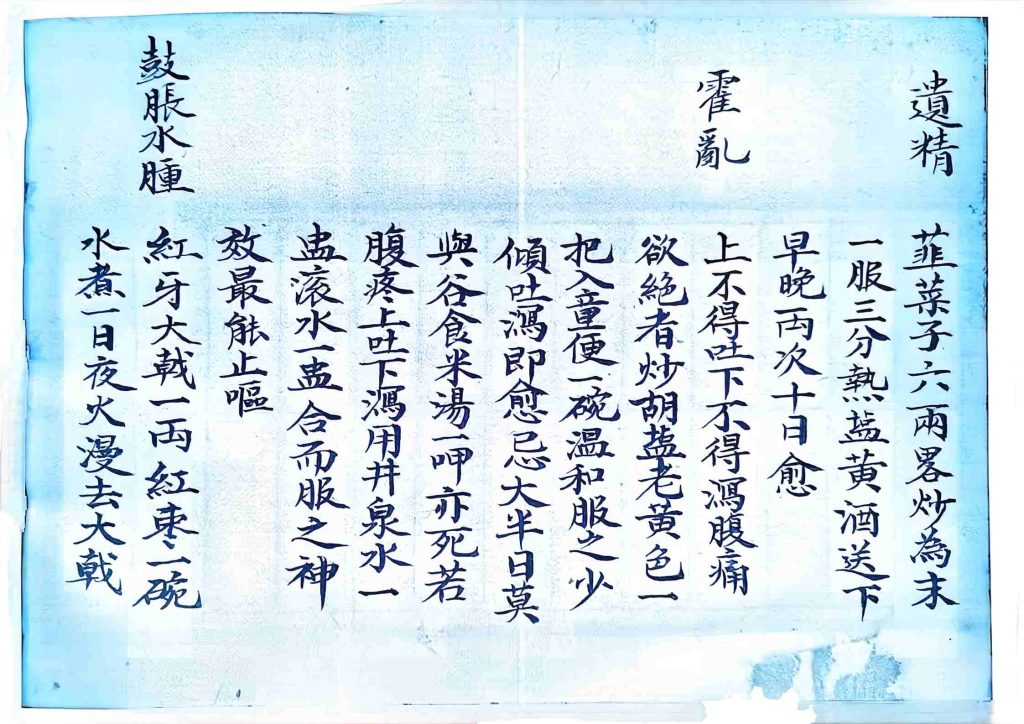 遺精
韮菜子六兩畧炒為末
一服三分熱盐黄酒送下
早晚両次十日愈
霍亂
上不得吐下不得瀉腹痛
欲絕者炒胡盐老黄色一
把入童便一碗温和服之少
傾吐瀉即愈忌大半日莫
與谷食米湯一呷亦死若
腹疼上吐下瀉用井泉水一
盅滚水一盅合而服之神
效最能止嘔
鼓脹水腫
紅牙大戟一両紅棗二碗
水煮一日夜火漫去大戟